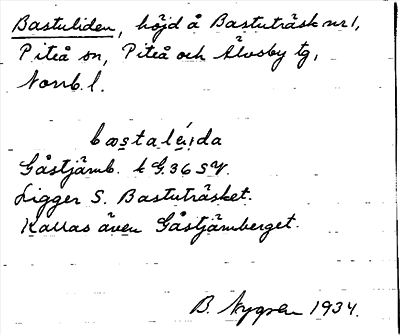 Bastuliden, höjd å Bastuträsk nr 1,
Piteå sn, Piteå och Älvsby tg,
Norrb. l.
bastaléida
Gåstjärnb. k G. 36 SV.
Ligger S. Bastuträsket.
Kallas även Gåstjärnberget.
B. Nygren 1934.